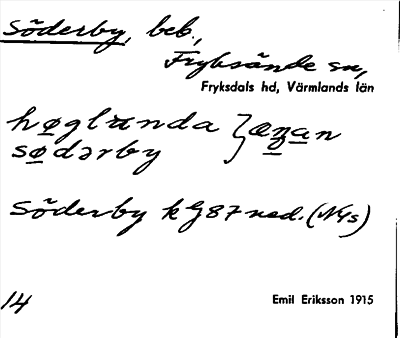 Söderby, beb.,
Fryksände sn,
Fryksdals hd, Värmlands län
høglunda } æŋan
sødərby
Söderby k G87 ned. (N4s)
14 Emil Eriksson 1915